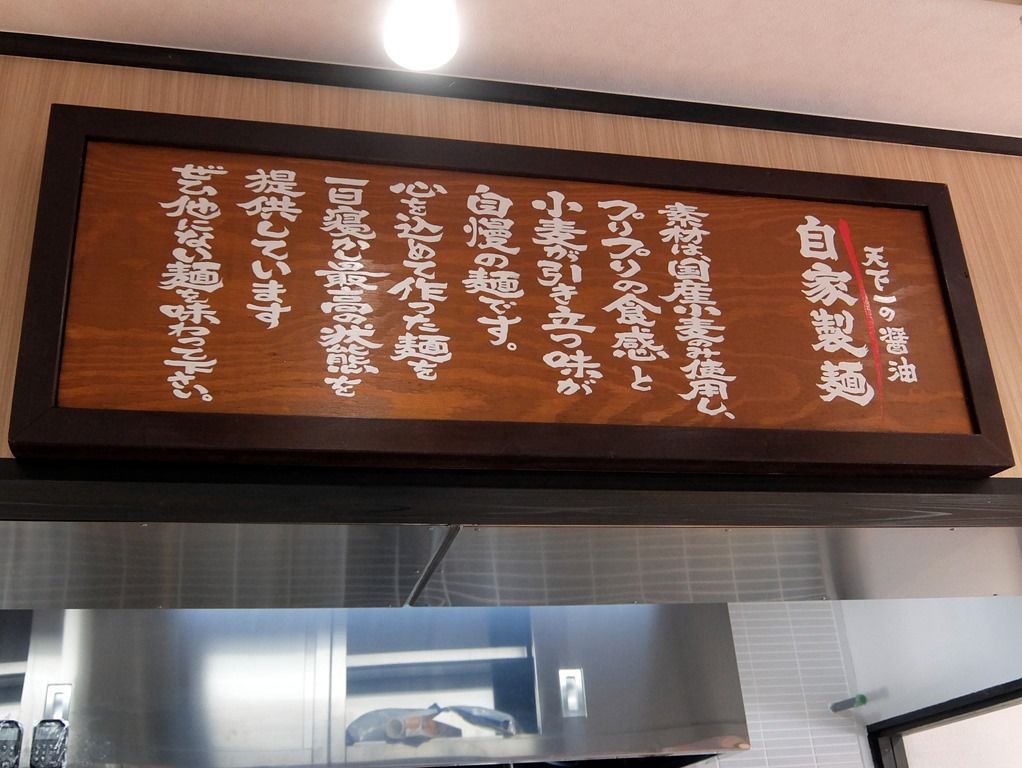 天下一の醤油
自家製麺
素材は国産小麦のみ使用し、
プリプリの食感と
小麦が引き立つ味が
自慢の麺です。
心を込めて作った麺を
一日寝かし最高の状態を
提供しています
ぜひ他にない麺を味わって下さい。